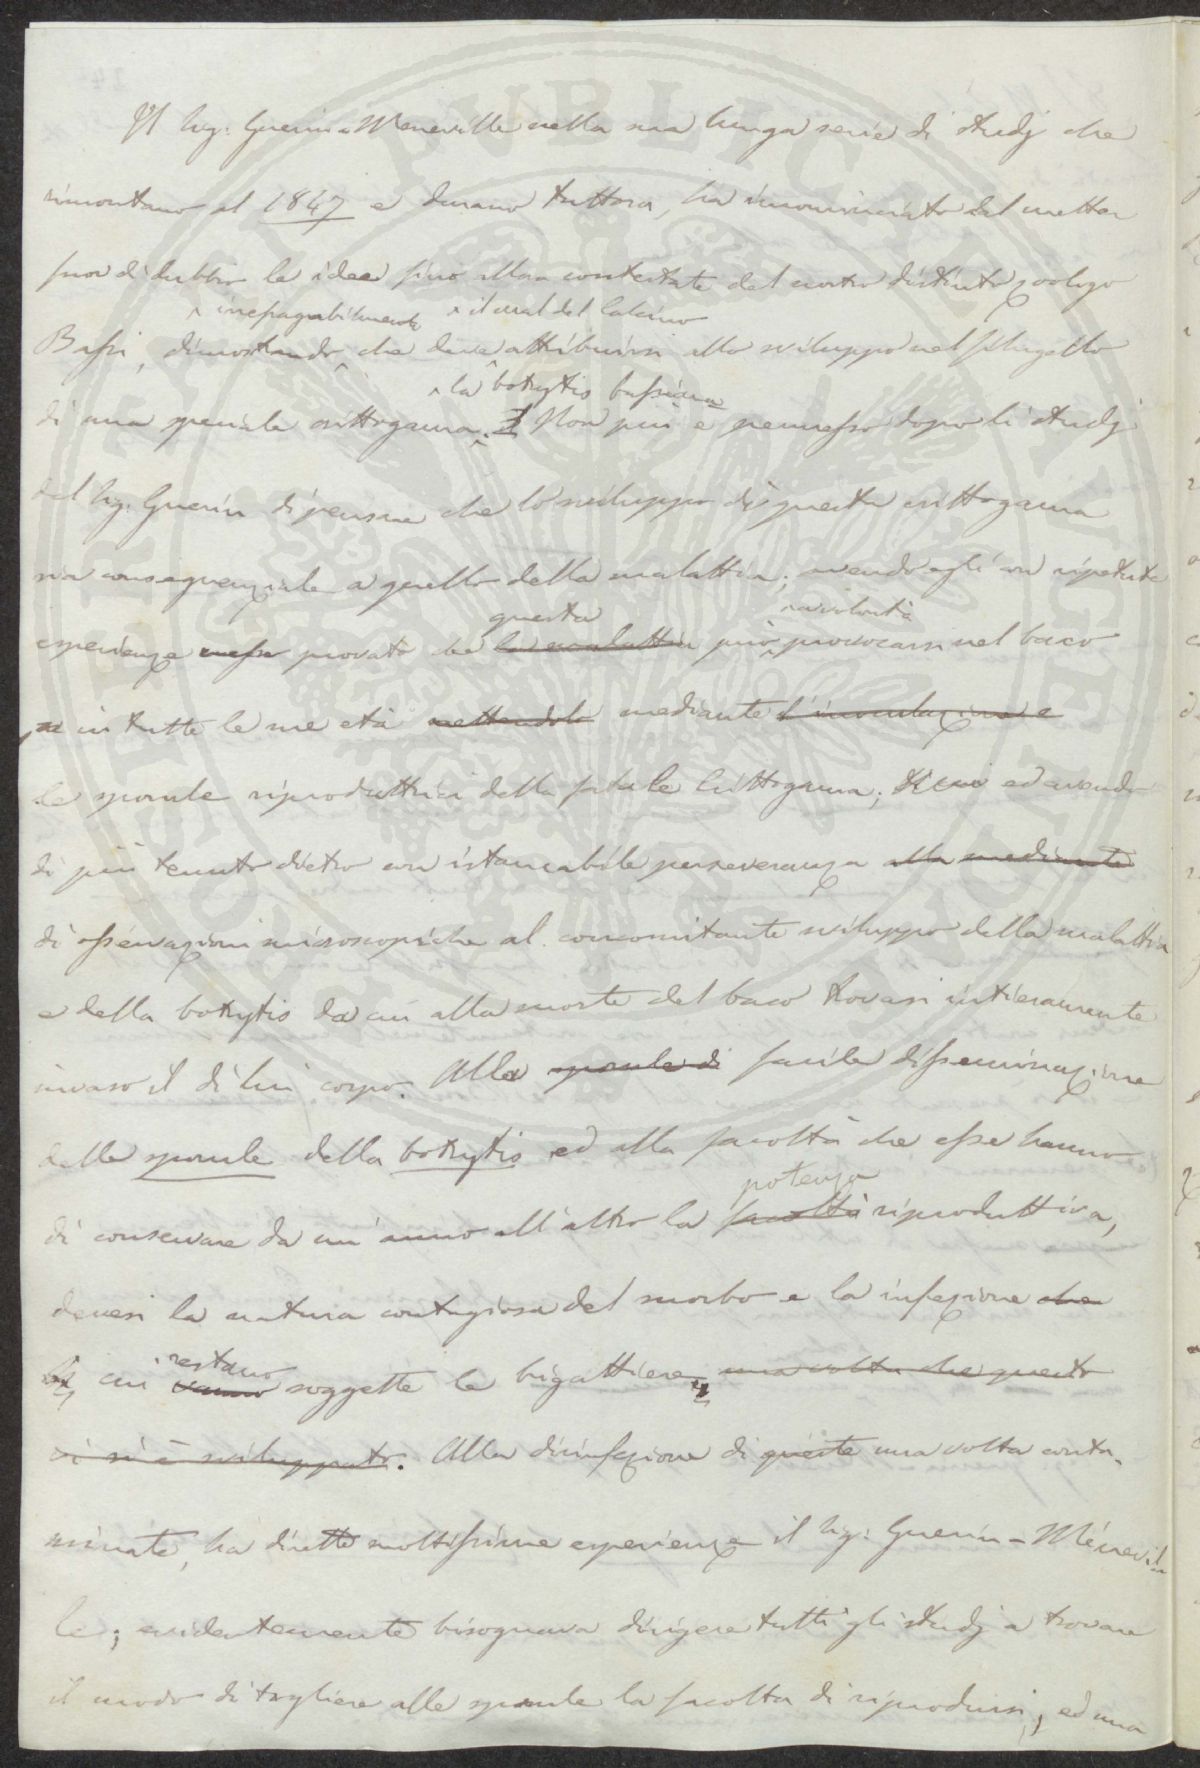 Il Sig: Guerin-Meneville nella sua lunga serie di studj che
rimontano al 1847 e durano tuttora, ha incominciato dal metter
fuor di dubbio le idee sino allora contestate del nostro distinto zoologo
irrefragabilmente il mal del Calcino
Bassi, dimostrando, che deve attribuirsi allo sviluppo nel filugello
la botrytis bassiana
di una speciale crittogama. Non più è permesso dopo li studj
del Sig: Guerin di pensare che lo sviluppo di questa crittogama
sia consequenziale a quello della malattia; avendo egli con ripetute
questa a volontà
esperienze messo provato che la malattia può provocarsi nel baco
in tutte le sue età mettendolo mediante l'inoculazione e
le sporule riproduttrici della fatale Crittogama; ed avendo
di più tenuto dietro con istancabile perseveranza alla mediante
di osservazioni microscopiche al concomitante sviluppo della malattia
e della botrytis da cui alla morte del baco trovasi intieramente
invaso il di lui corpo. Alla sporule di facile disseminazione
delle sporule della botrytis ed alla facoltà che esse hanno
potenza
di conservare da un anno all'altro la facoltà riproduttiva,
devesi la natura contagiosa del morbo e la infezione che
restano
a cui vanno soggette le bigattiere, una volta che questo
vi si è sviluppato. Alla disinfezione di queste una volta conta-
minate, ha dirette moltissime esperienze il Sig: Guerin-Ménevil-
le; evidentemente bisognava dirigere tutti gli studj a trovare
il modo di togliere alle sporule la facoltà di riprodursi, ed una